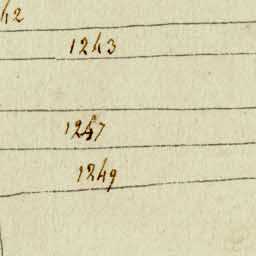 42
1243
1247
1249